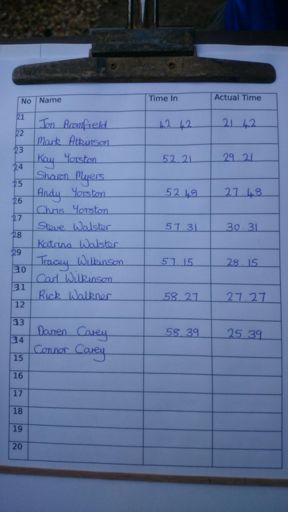 No Name Time In Actual Time
21 Jon Bromfield 42 42 21 42
22 Mark Atkinson
23 Kay Yorston 52 21 29 21
24 Sharon Myers
25 Andy Yorston 52 48 27 48
26 Chris Yorston
27 Steve Walster 57 31 30 31
28 Katrina Walster
29 Tracey Wilkinson 57 15 28 15
30 Carl Wilkinson
31 Rick Walkner 58 27 27 27
12
33 Darren Carey 58 39 25 39
34 Connor Carey
15
16
17
18
19
20